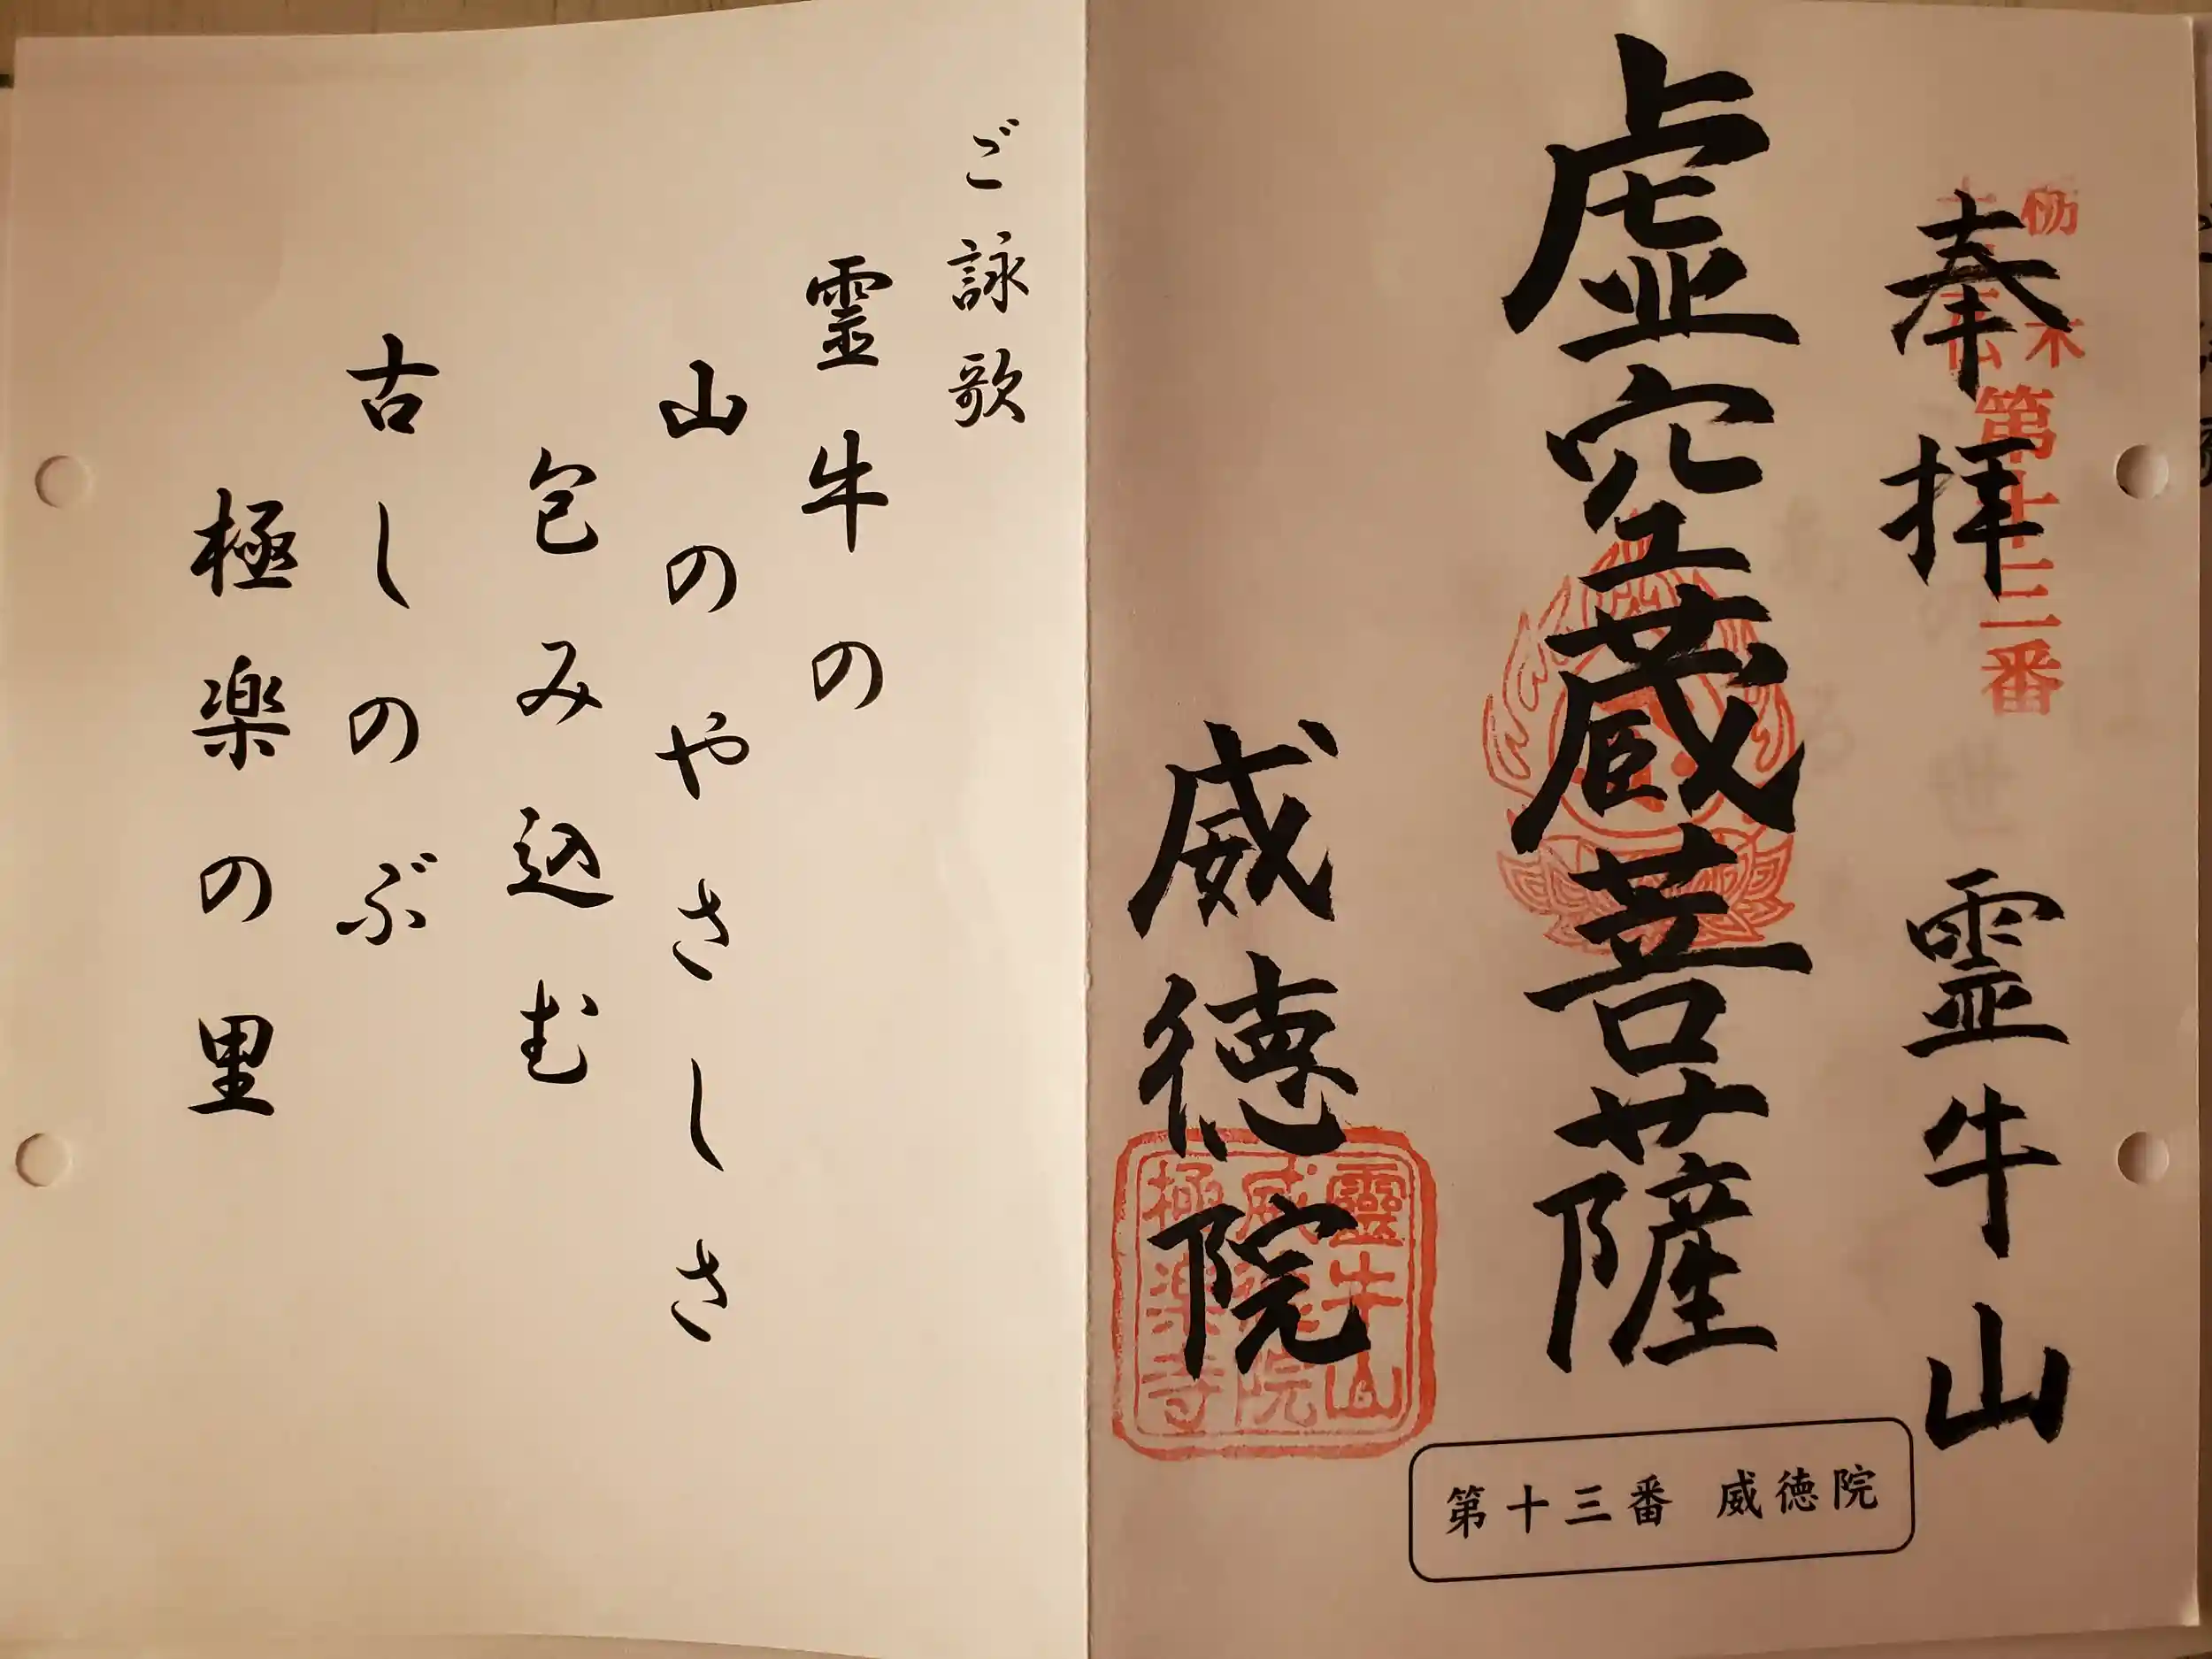 栃木
第十三番
奉拝　霊牛山
虚空蔵菩薩
威徳院
靈牛山
威徳院
極楽寺
第十三番 威徳院
ご詠歌
霊牛の
山のやさしさ
包み込む
古しのぶ
極楽の里